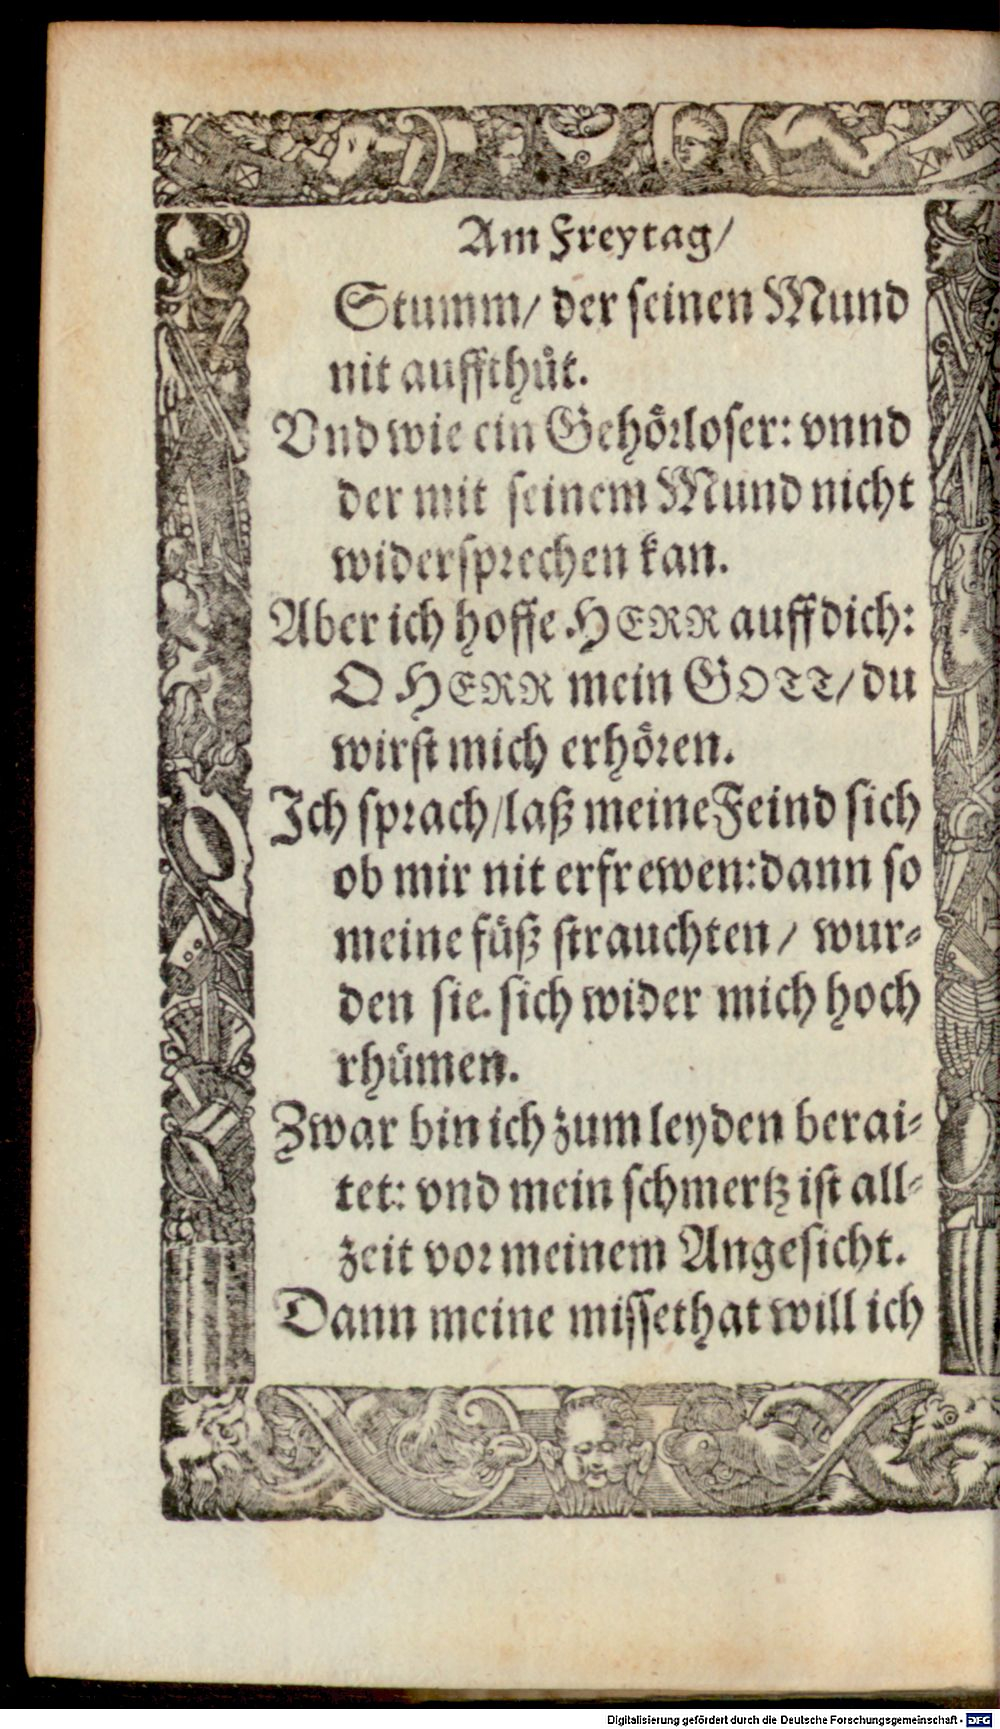 Am Freytag/
Stumm/ der seinen Mund
nit auffthüt.
Vnd wie ein Gehörloser: vnnd
der mit seinem Mund nicht
widersprechen kan.
Aber ich hoffe HERR auff dich:
O HERR mein GOTT/ du
wirst mich erhören.
Ich sprach/laß meine Feind sich
ob mir nit erfrewen:dann so
meine füß strauchten/ wur-
den sie. sich wider mich hoch
rhümen.
Zwar bin ich zum leyden berai-
tet: vnd mein schmertz ist all-
zeit vor meinem Angesicht.
Dann meine missethat will ich
Digitalisierung gefördert durch die Deutsche Forschungsgemeinschaft - DFG